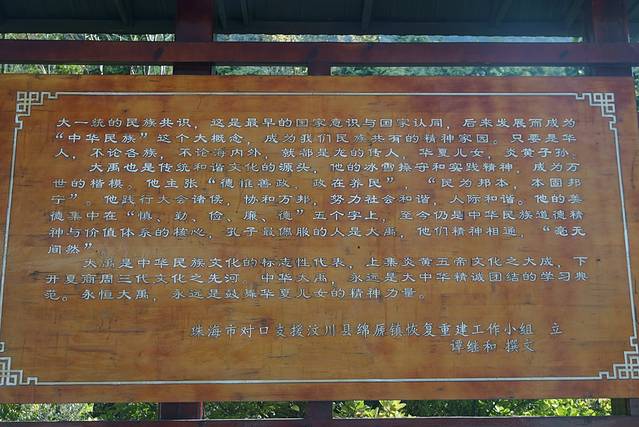 大一统的民族共识，这是最早的国家意识与国家认同，后来发展而成为
“中华民族”这个大概念，成为我们民族共有的精神家园。只要是华
人，不论各族，不论海内外，就都是龙的传人，华夏儿女，炎黄子孙。
大禹也是传统和谐文化的源头，他的冰雪操守和实践精神，成为万
世的楷模。他主张“德惟善政，政在养民”、“民为邦本，本固邦
宁”。他践行大会诸侯，协和万邦，努力社会和谐，人际和谐。他的美
德集中在“慎、勤、俭、廉、德”五个字上，至今仍是中华民族道德精
神与价值体系的核心，孔子最佩服的人是大禹，他们精神相通，“毫无
间然”。
大禹是中华民族文化的标志性代表，上集炎黄五帝文化之大成，下
开夏商周三代文化之先河。中华大禹，永远是大中华精诚团结的学习典
范。永恒大禹，永远是鼓舞华夏儿女的精神力量。
珠海市对口支援汶川县绵虒镇恢复重建工作小组 立
谭继和 撰文